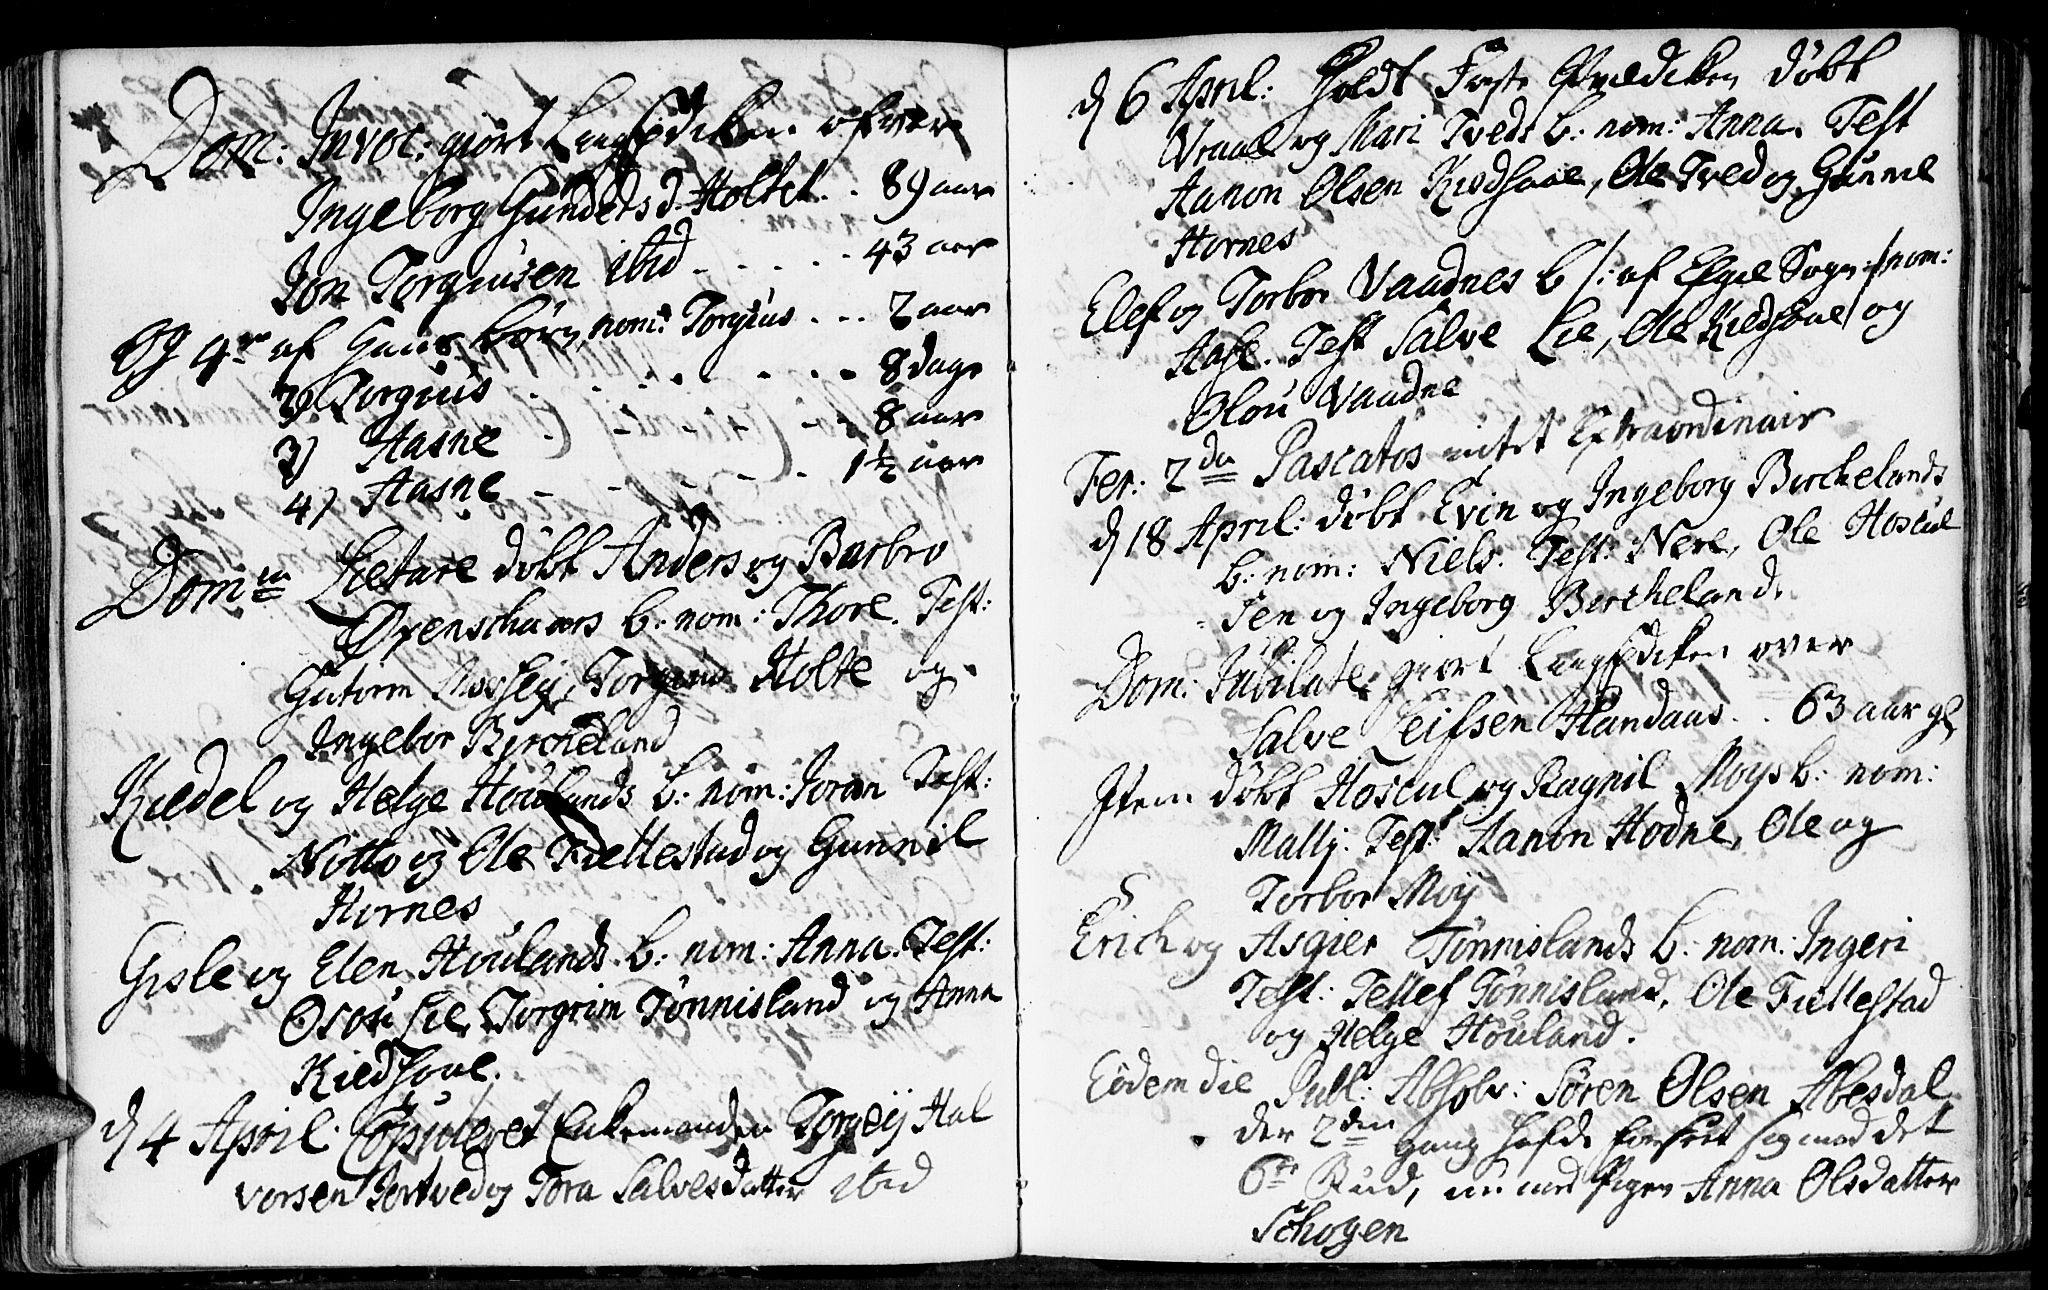 Dom: Invoc: giort Liigprediken ofver
Ingeborg Gunders d. Holtet . . 89 aar
Jon Torgiusen ibid . . . . . 43 aar
Og 4re af Hans börn, nom: Torgius . . . 2 aar
2) Torgius . . . . . . 8 dage
3) Aasne . . . . . 8 aar
4) Aasne . . . . . 1½ aar
Domin Lætare döbt Anders og Barbro
Øxenschaars b: nom: Thore. Test:
Gutorm Torgius Holte og
Ingebor Bircheland
Kiedel og Helge Houlands b: nom: Joran Test:
Notto og Ole Fiellestad og Gunnil
Hornes
Gisle og Elen Houlands b: nom: Anna. Test:
Osou Lie, Torgrim Tønnisland og Anna
Kiedsoue.
d 4 April. Copuleret Enkemanden Torgeij Hal
vorsen Tortved og Tora Salvesdatter ibid
d 6 April: Holdt Faste Prædiken döbt
Vraal og Mari Tveds b: nom: Anna. Test
Aanon Olsen Kiedsoue, Ole Tved og Gunnil
Hornes
Elef og Torbor Vaadnes b /: af Sogn :/ nom:
Aase. Test Salve Lie, Ole Kiedsoue og
Olou Vaadne
Fer: 2da Pascatos intet Extraordinair
d 18 April: döbt Evin og Ingeborg Birchelands
b: nom: Niels. Test: Nere, Ole Hoscul
sen og Ingeborg Bircheland.
Dom: Jubilate giort Liigprediken over
Salve Leifsen Handaas . . 63 aar gl
Item döbt Hoscul og Ragnil Moys b: nom:
Mallj. Test: Aanon Hodne, Ole og
Torbor Moij
Erich og Asgier Tönnislands b: nom: Ingeri
Test: Tellef Tönnisland, Ole Fiellestad
og Helge Houland.
Eodem die Publ: Absolv: Sören Olsen Abesdal
der 2den gang hafde forseet sig mod det
6te Bud, nu med Pigen Anna Olsdatter
Schogen